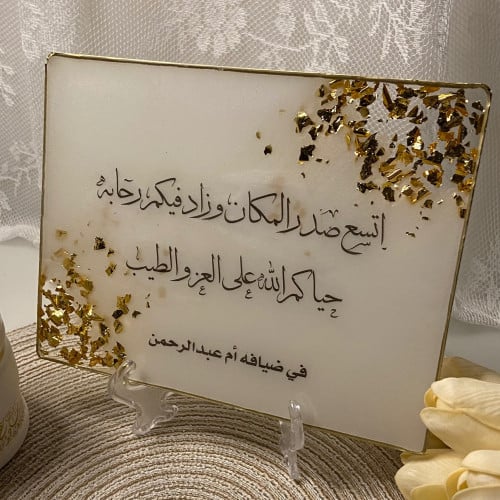 اتسع صدر المكان وزاد فيكم رحابه
حياكم الله على العز والطيب
في ضيافه أم عبدالرحمن